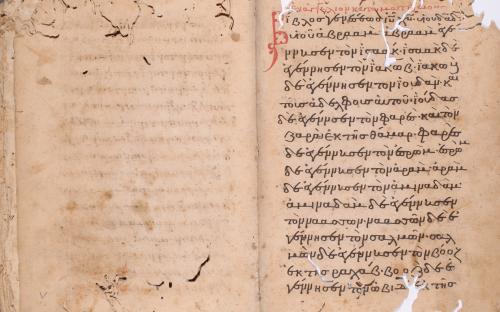 εὐαγγέλιον κατὰ ματθαῖον
Βίβλος γενέσεως ιυ χυ υἱοῦ δαδ
υἱοῦ ἀβραάμ· ἀβραὰμ ἐγέ
ννησεν τὸν ἰσαάκ· ἰσαὰκ δὲ
ἐγέννησεν τὸν ἰακώβ· ἰακὼβ
δὲ ἐγέννησεν τὸν ἰούδαν· κ
τοὺς ἀδελφοὺς αὐτοῦ· ἰούδας
δὲ ἐγέννησεν τὸν φαρὲς· καὶ τὸν
ζαρὰ ἐκ τῆς θάμαρ· φαρὲς
δὲ ἐγέννησεν τὸν ἐσρώμ· ἐσρὼμ
δὲ ἐγέννησεν τὸν ἀράμ· ἀρὰμ
δὲ ἐγέννησεν τὸν ἀμιναδάμ·
ἀμιναδὰμ δὲ ἐγέννησεν
τὸν ναασσών· ναασσὼν δὲ ἐ
γέννησεν τὸν σαλμών· σαλ
μὼν δὲ ἐγέννησεν τὸν βοὸζ
ἐκ τῆς ραχάβ· βοὸζ δὲ ἐ
γέννησεν τὸν ὠβὴδ ἐκ τῆς